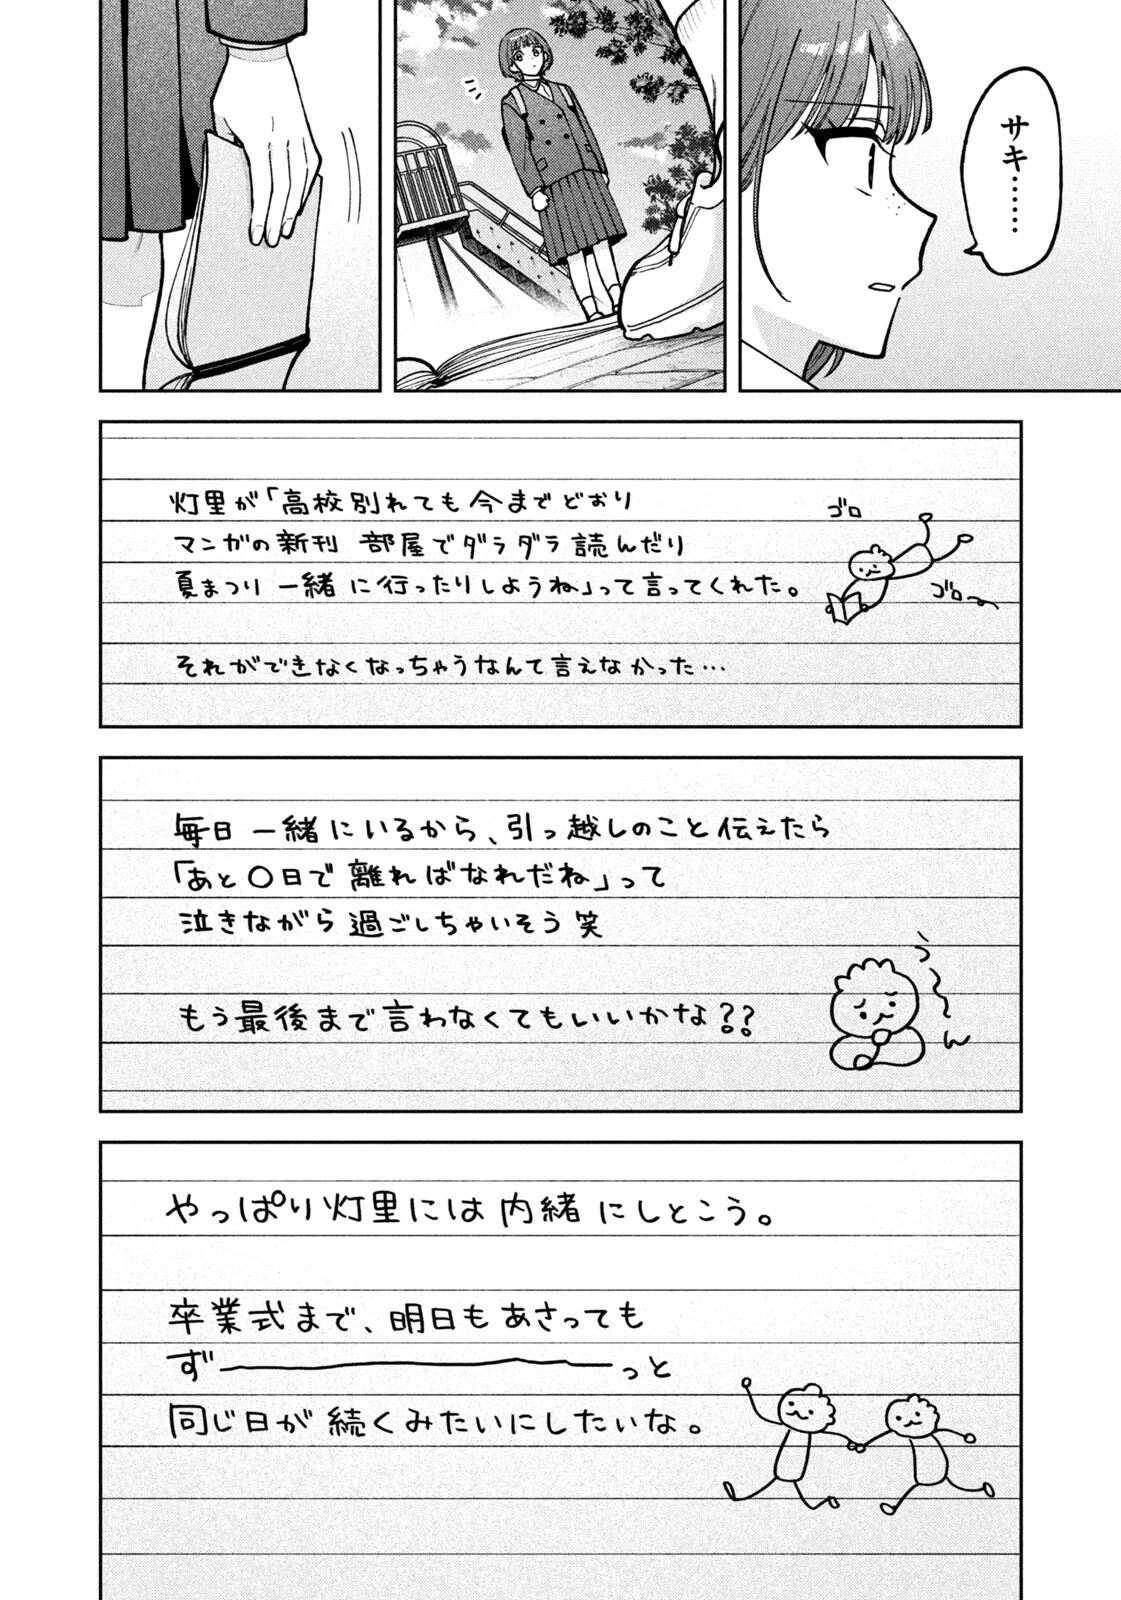 サキ……
灯里が「高校別れても今までどおり
マンガの新刊 部屋でダラダラ読んだり
夏まつり一緒に行ったりしようね」って言ってくれた。
ゴロ
ゴロ〜
それができなくなっちゃうなんて言えなかった…
毎日一緒にいるから、引っ越しのこと伝えたら
「あと〇日で離ればなれだね」って
泣きながら過ごしちゃいそう笑
もう最後まで言わなくてもいいかな??
う〜ん
やっぱり灯里には内緒にしとこう。
卒業式まで、明日もあさっても
ず――――っと
同じ日が続くみたいにしたいな。